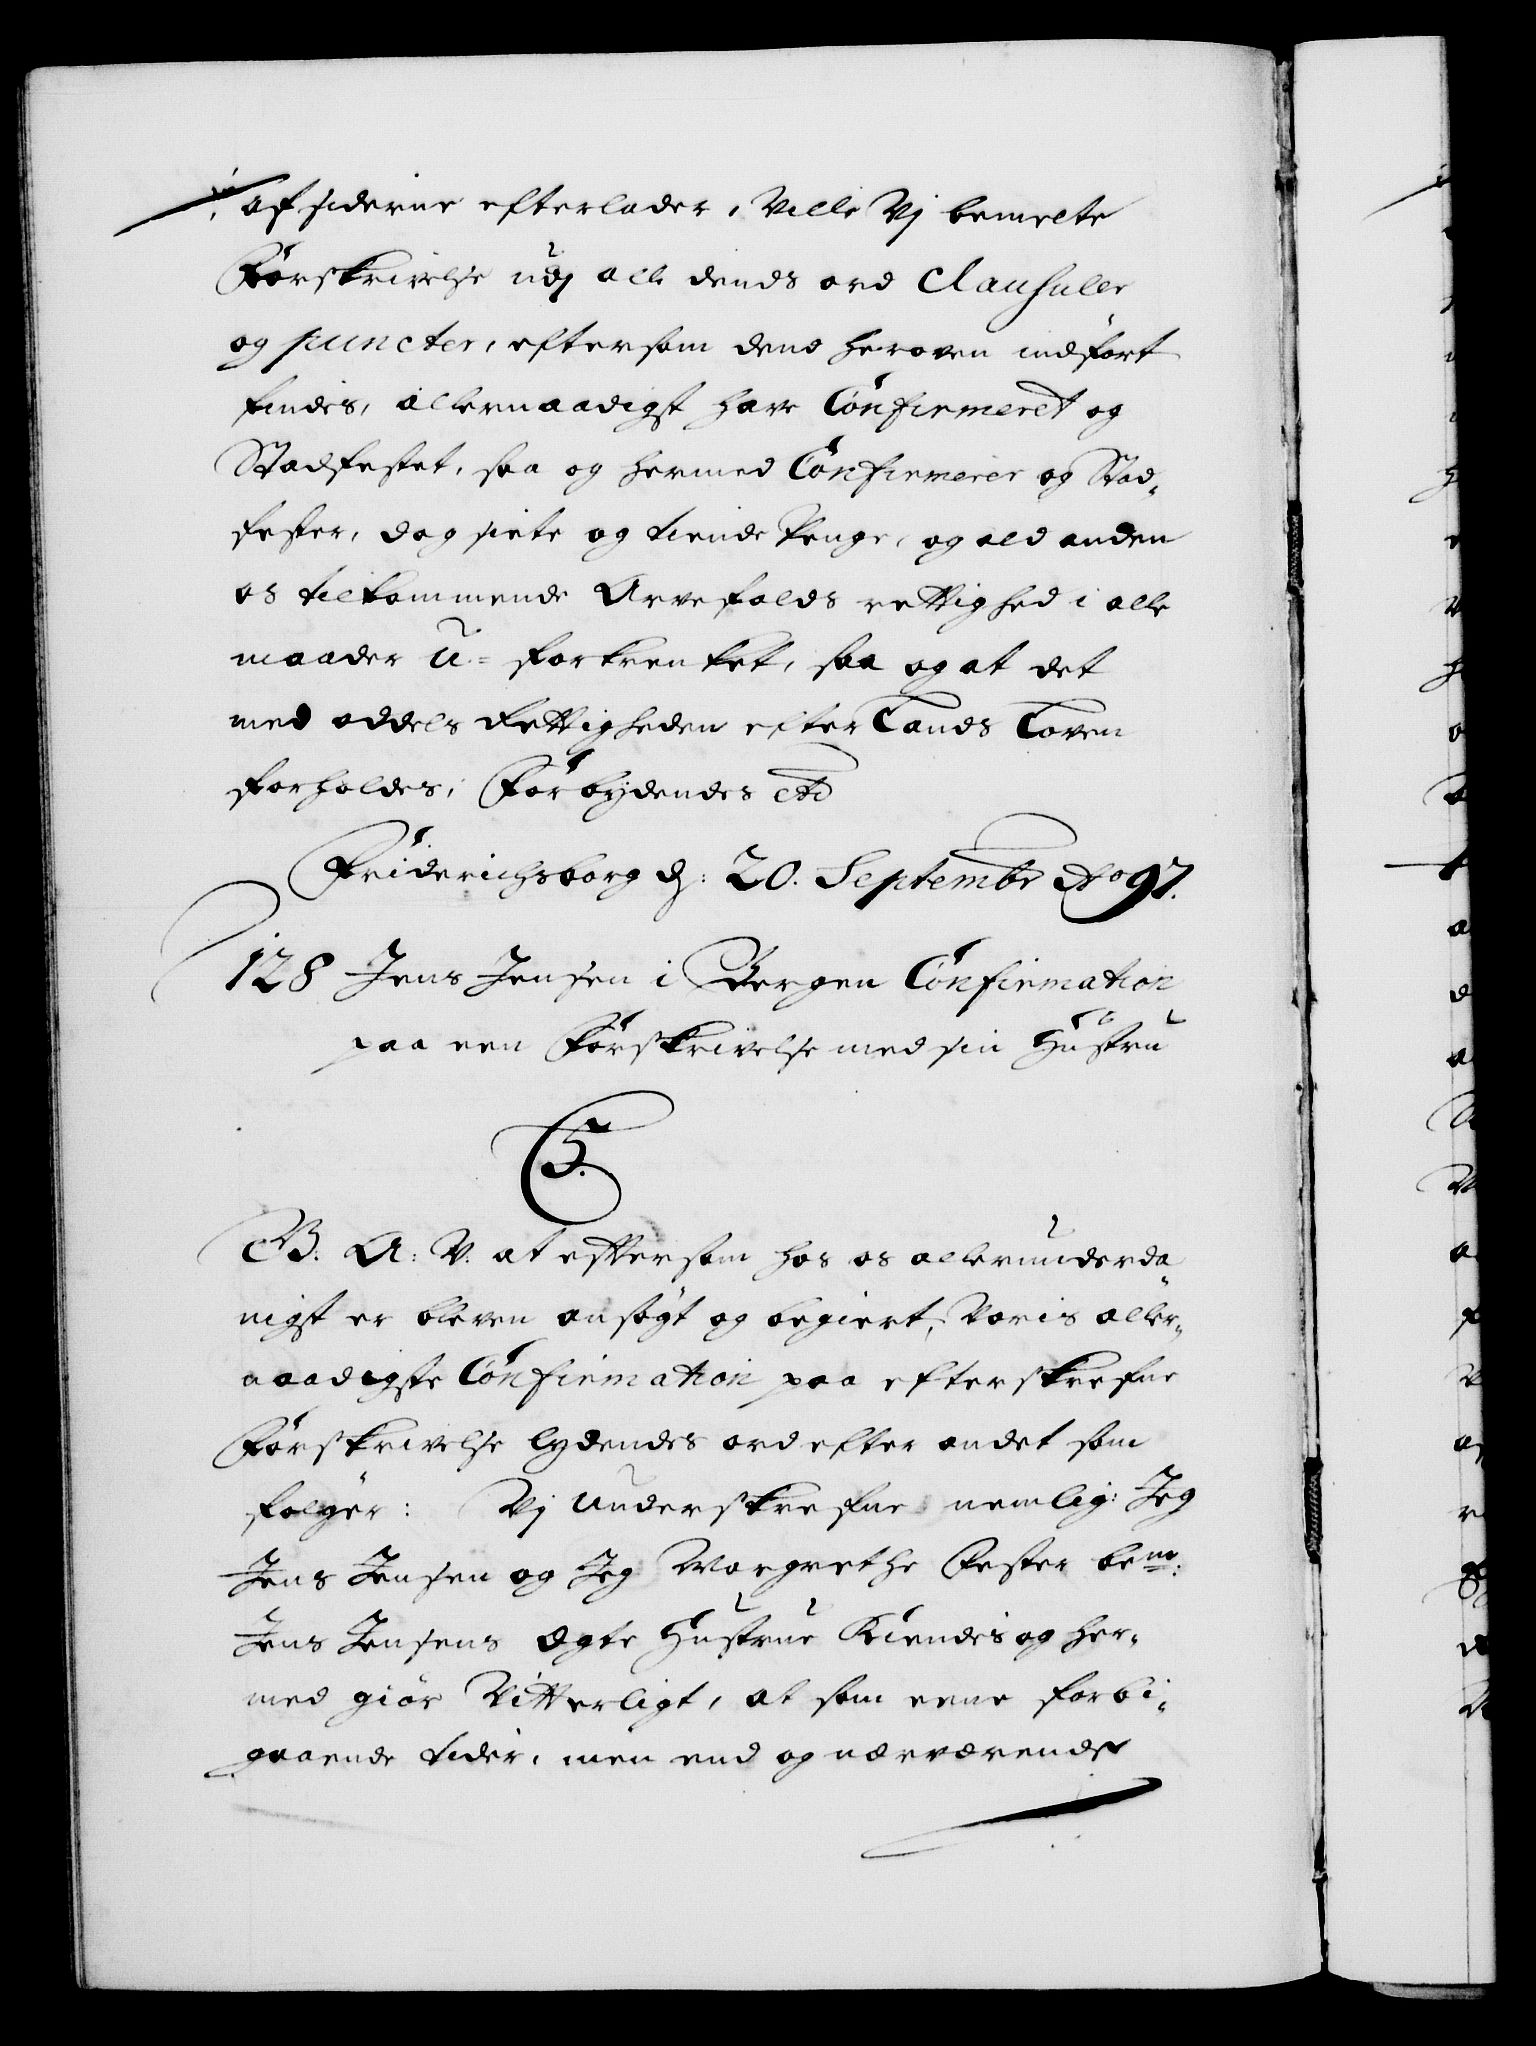 af siderne efterlader, Ville Vj bemelte
Forskrivelse udj alle dends ord Clausuler
og puncter, eftersom dend heroven indfört
findes, allernaadigst have Confirmeret og
Stadfestet, saa og hermed Confirmerer og Stad-
fester, dog siette og tiende Penge, og ald anden
os tilkommende Arvefalds rettighed i alle
maader U-forkrenket, saa og at det
med oddels Rettigheden efter Lands Loven
forholdes, Forbydendes etc
Friderichsborg d: 20. Septembr Ao 97.
128 Jens Jensen i Bergen Confirmation
paa een Forskrivelse med sin Hustru
C5.
G. A: V. at eftersom hos os allerunderda-
nigst er bleven ansögt og begiert, Voris aller-
naadigste Confirmation paa efterskrefne
Forskrivelse lydendes ord efter andet som
fölger: Vj Underskrefne nemlig: Jeg
Jens Jensen og Jeg Margrethe Fester bem:
Jens Jensens ægte Hustrue Kiendes og her-
med giör Vitterligt, at som eene forbi-
gaaende tider, men end og nærværende